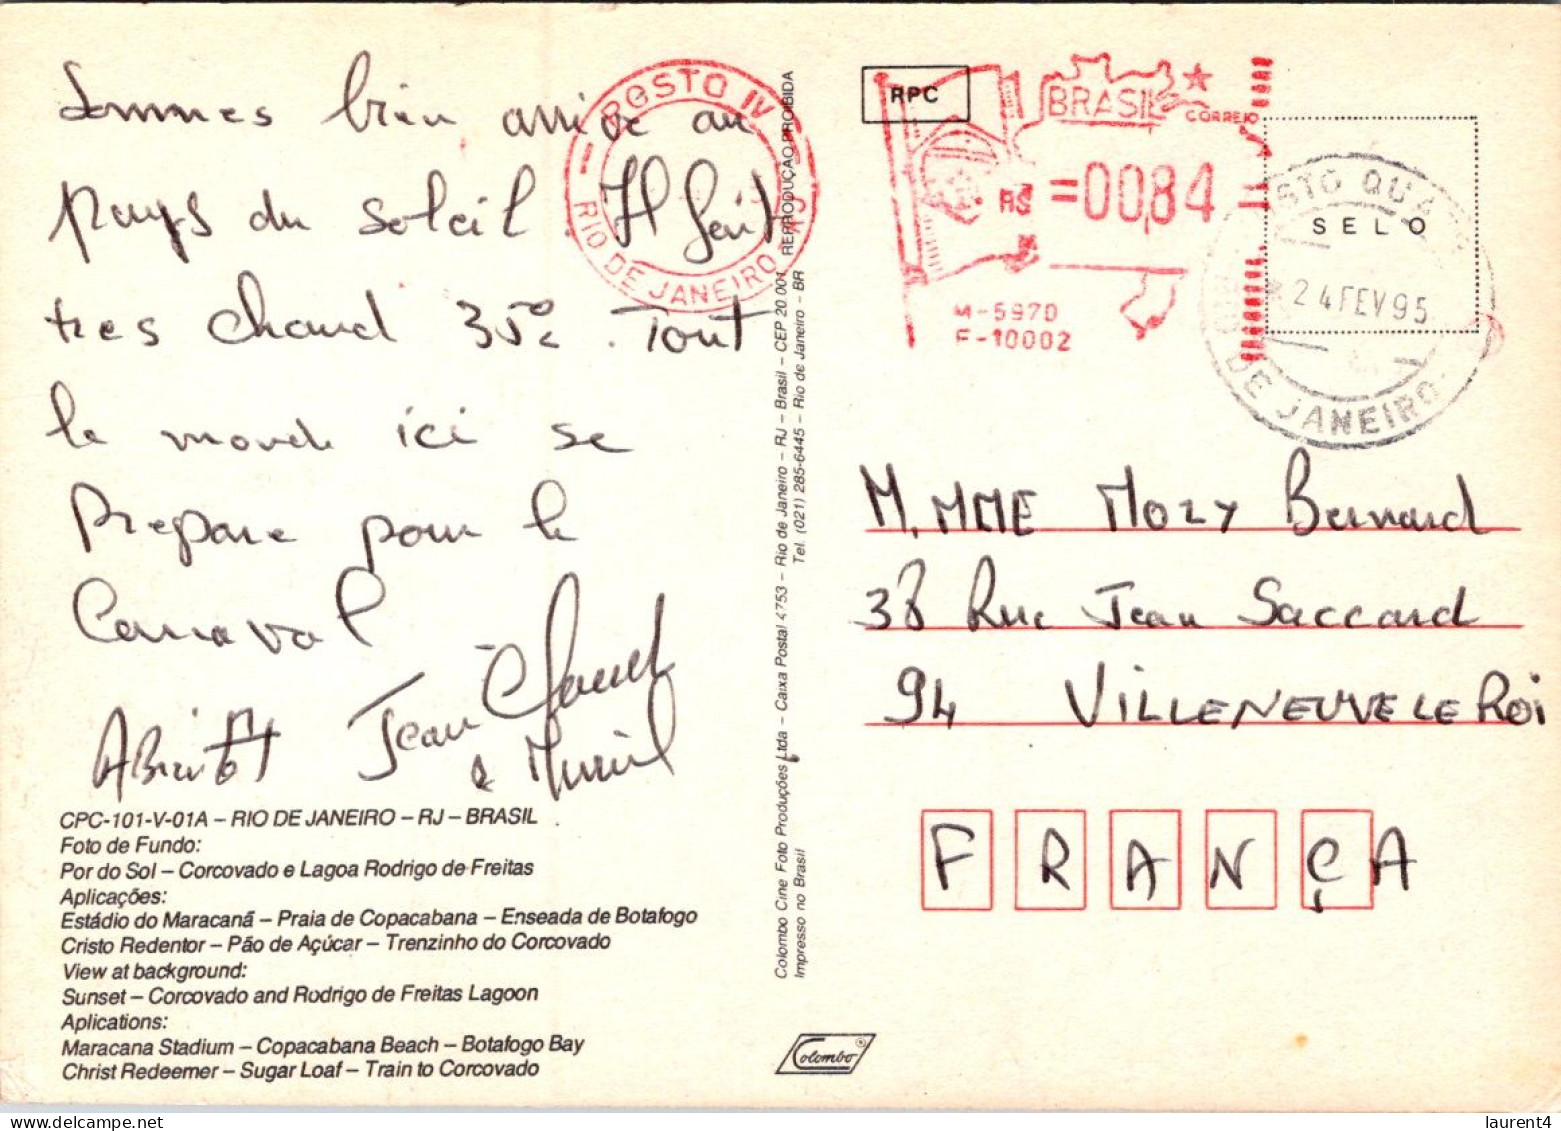 Sommes bien arrivé au
pays du soleil. Il fait
tres chaud 35°c. Tout
le monde ici se
prepare pour le
Carnaval
ABientôt Jean Claud
& Muriel
CPC-101-V-01A – RIO DE JANEIRO – RJ – BRASIL
Foto de Fundo:
Por do Sol – Corcovado e Lagoa Rodrigo de Freitas
Aplicações:
Estádio do Maracanã – Praia de Copacabana – Enseada de Botafogo
Cristo Redentor – Pão de Açúcar – Trenzinho do Corcovado
View at background:
Sunset – Corcovado and Rodrigo de Freitas Lagoon
Aplications:
Maracana Stadium – Copacabana Beach – Botafogo Bay
Christ Redeemer – Sugar Loaf – Train to Corcovado
POSTO IV
RIO DE JANEIRO - RJ
Colombo Cine Foto Produções Ltda – Caixa Postal 4753 – Rio de Janeiro – RJ – Brasil – CEP 20.001 REPRODUÇÃO PROIBIDA
Impresso no Brasil Tel. (021) 285-6445 – Rio de Janeiro – BR
Colombo
RPC
BRASIL
CORREIO
R$ =0084
M-5970
F-10002
SELO
24 FEV 95
DE JANEIRO
M. MME Mozy Bernard
38 Rue Jean Saccard
94 VILLENEUVE LE Roi
FRANÇA
laurent4